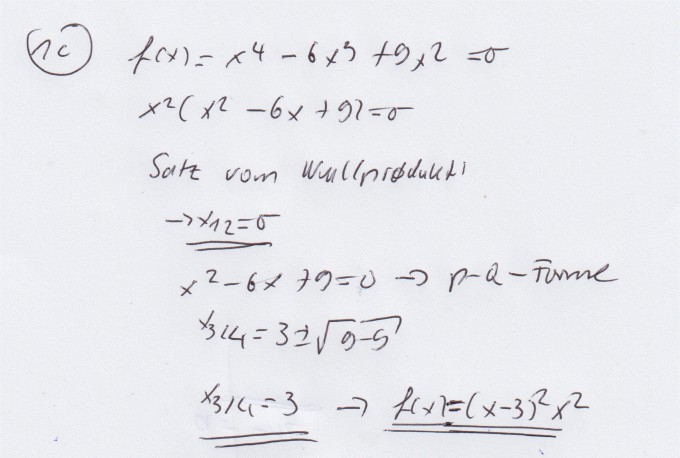 1c f(x) = x⁴ - 6x³ + 9x² = 0
x²(x² - 6x + 9) = 0
Satz vom Nullprodukt:
→ x12 = 0
x² - 6x + 9 = 0 → p-q-Formel
x3/4 = 3 ± √9-9
x3/4 = 3 → f(x) = (x-3)²x²